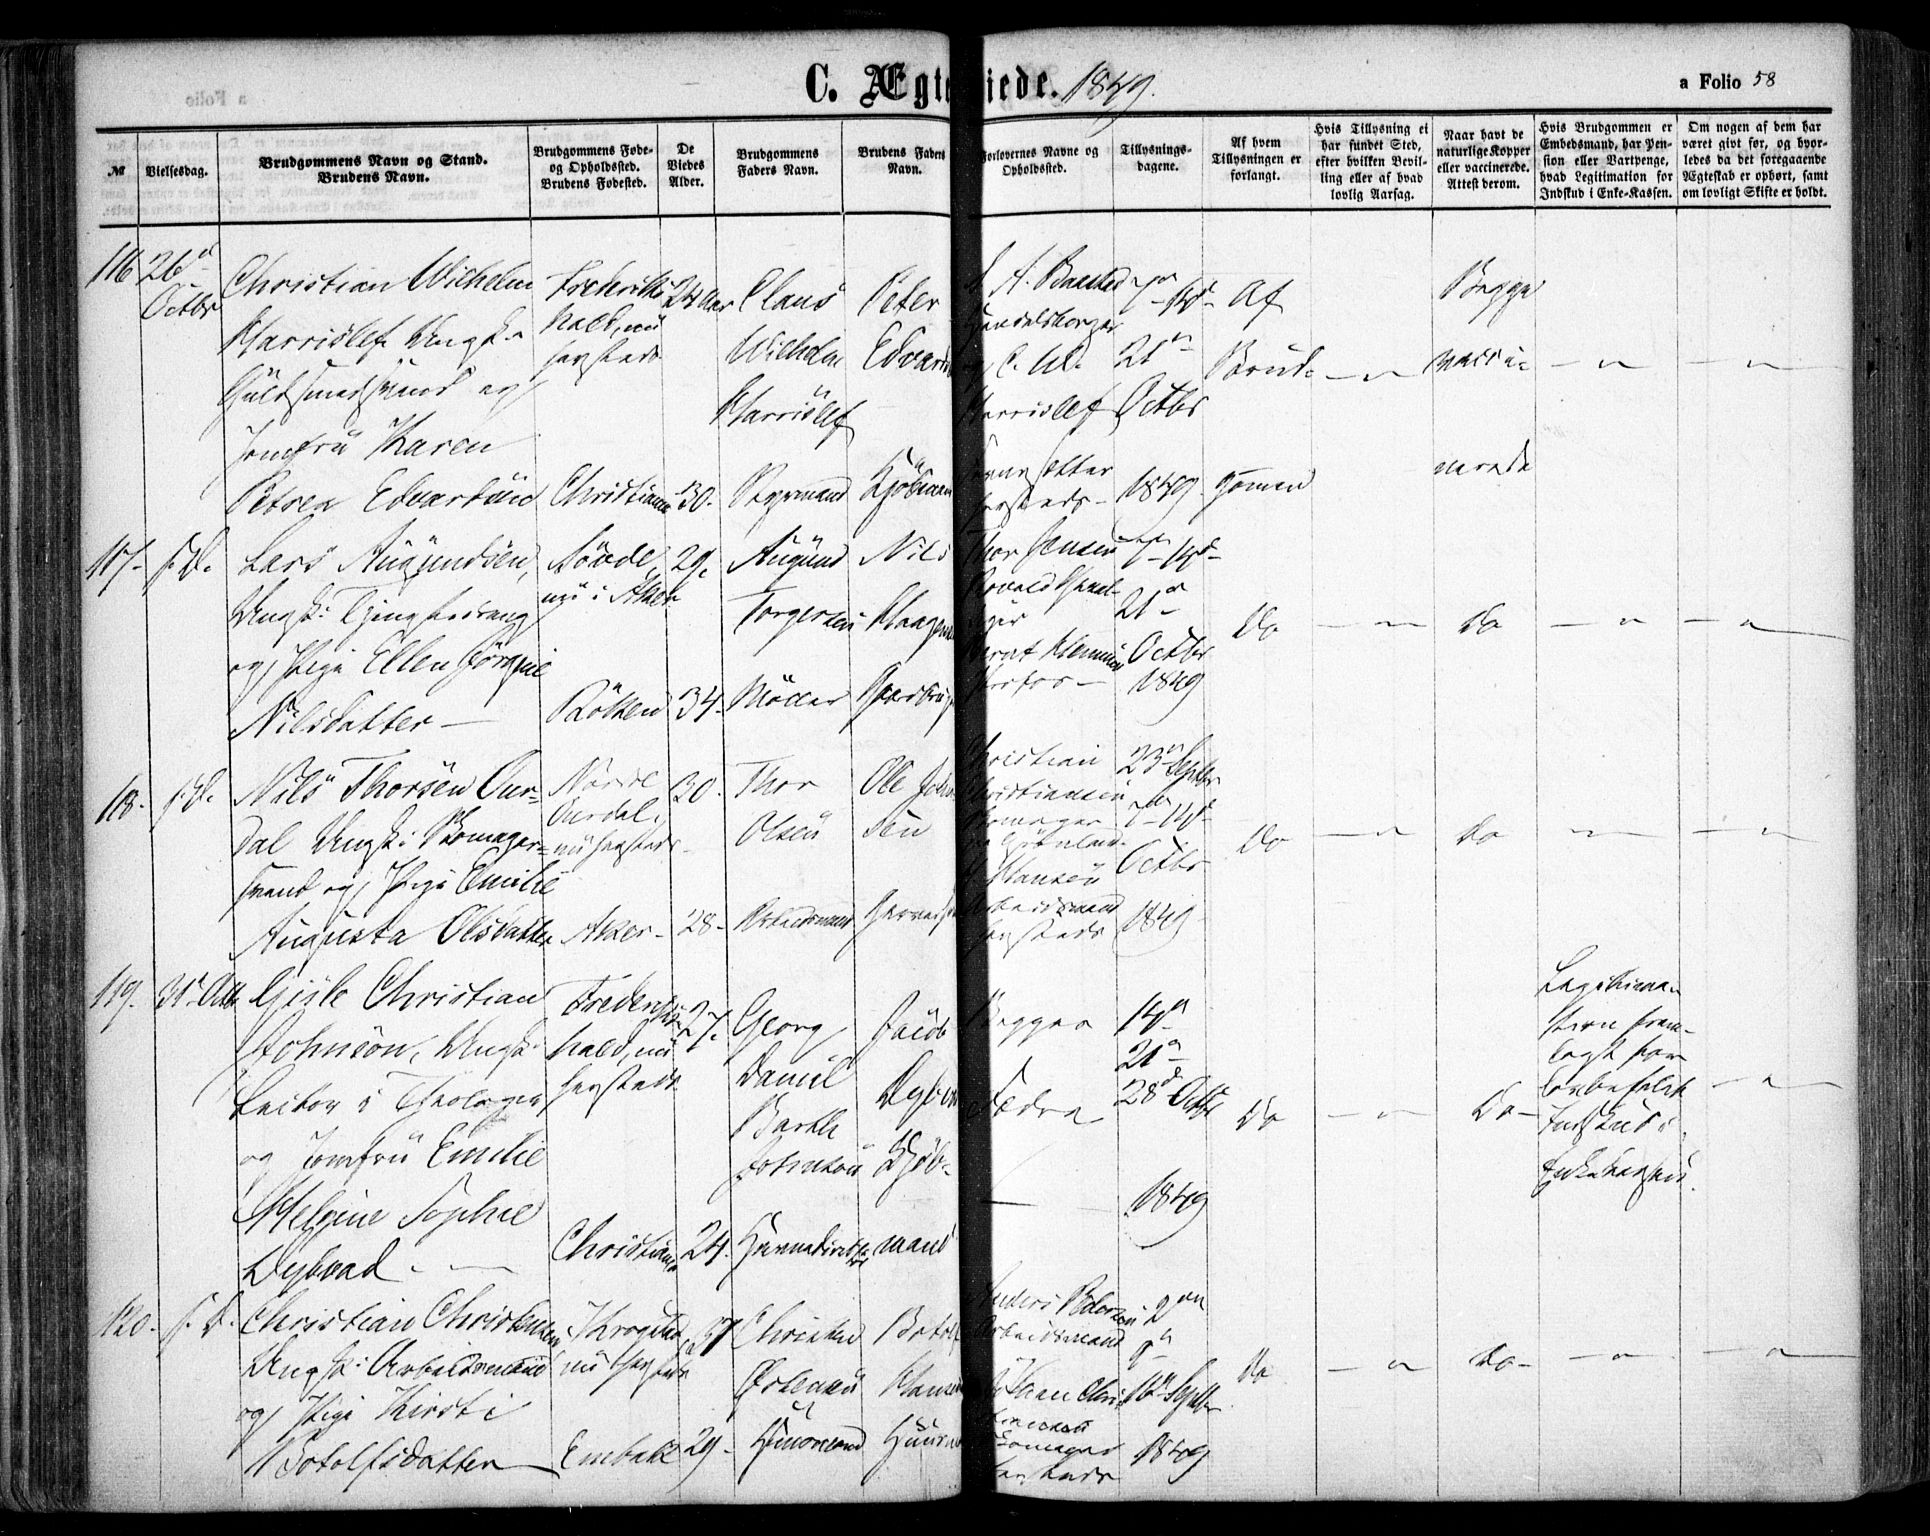 C. Ægteviede. 1849.
a Folio 58
№
Vielsesdag.
Brudgommens Navn og Stand.
Brudens Navn.
Brudgommens Føde-
og Opholdssted.
Brudens Fødested.
De
Viedes
Alder.
Brudgommens
Faders Navn.
Brudens Faders
Navn.
Forlovernes Navne og
Opholdssted.
Tillysnings-
dagene.
Af hvem
Tillysningen er
forlangt.
Hvis Tillysning ei
har fundet Sted,
efter hvilken Bevil-
ling eller af hvad
lovlig Aarsag.
Naar havt de
naturlige Kopper
eller vaccinerede.
Attest derom.
Hvis Brudgommen er
Embedsmand, har Pen-
sion eller Vartpenge,
hvad Legitimation for
Indskud i Enke-Kassen.
Om nogen af dem har
været givt før, og hvor-
ledes da det foregaaende
Ægteskab er ophørt, samt
om lovligt Skifte er holdt.
116
26d
Octbr
Christian Wilhelm
Harrislef Ungk.
Guldsmedsvend og
Jomfru Karen
Petrea Edvardsen
Frederiks
hald, nu
hersteds
Christiania
24 Aar
30.
Claus
Wilhelm
Harrislef
Styrmand
Peter
Edvard
Kjøbmand
Handelsborger
C. W.
Harrislef
hersteds
7de 14de
21de
Octbr
1849
Af
Brud-
gommen
Begge
vacci-
nerede
117.
s. D.
Lars Augundsen,
Ungk: Tjenestedreng
og Pige Ellen Jørgine
Nilsdatter
nu i Aker
Røken
29.
34.
Augund
Torgersen
Møller
Nils
Haagen
Thor Jensen
7de 14de
21de
Octbr
1849
Do
Do
118.
s. D.
Nils Thorsen Our-
dal Ungk: Skomager-
svend og Pige Emilie
Augusta Olsdatter
Nørre
Ourdal,
nu hersteds
Aker
30.
28.
Thor
Olsen
Arbeidsmand
Ole Johan
sen
Christian
Christiansen
Skomager
Hansen
Arbeidsmand
hersteds
23de Septbr
7de 14de
Octbr
1849
Do
Do
119.
31te Octbr
Gisle Christian
Johnson, Ungk:
Lector i Theologien
og Jomfru Emilie
Helgine Sophie
Dybvad.
Frederiks
hald, nu
hersteds
Christiania
27.
24.
Georg
Daniel
Barth
Johnson
Havnedirecteur
Jacob
Dybvad
Kjøb-
mand
Begges
Fædre
14de
21de
28de Octbr
1849
Do
Do
Legitima-
tion frem-
lagt for
lovbefalet
Indskud i
Enkekassen.
120.
s. D.
Christian Christensen
Ungk: Arbeidsmand
og Pige Kirsti
Botolfsdatter
nu hersteds
37
29
Christen
Østensen
Huusmand
Botolf
Hansen
Huusmand
Anders Pedersen
Arbeidsmand
Skomager
hersteds
2den
9de
16de Septbr
1849
Do
Do